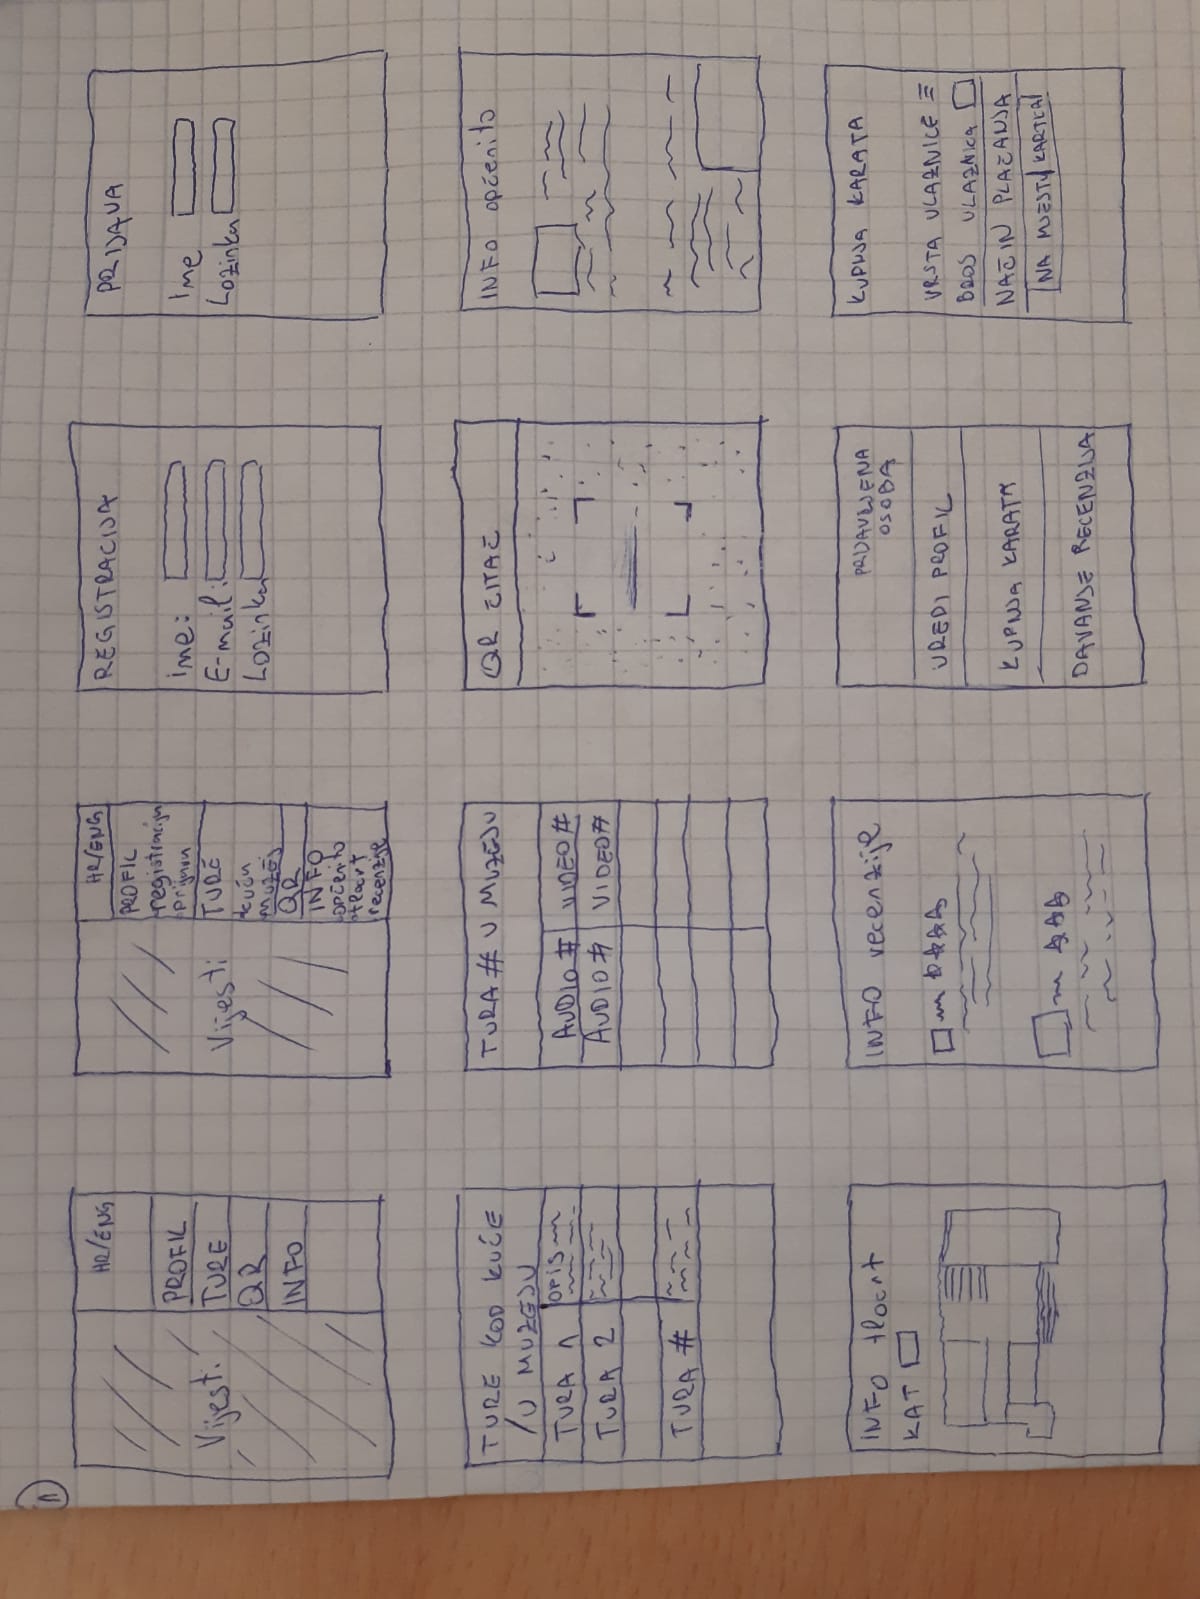 1
HR/ENG
PROFIL
TURE
QR
INFO
Vijesti
HR/ENG
PROFIL
registracija
prijava
TURE
kuća
MUZEJ
QR
INFO
općenito
tlocrt
recenzije
Vijesti
REGISTRACIJA
Ime:
E-mail:
Lozinka
PRIJAVA
Ime
Lozinka
TURE KOD KUĆE
/U MUZEJU
TURA 1 OPIS
TURA 2
TURA #
TURA # U MUZEJU
AUDIO # VIDEO #
AUDIO # VIDEO #
QR ČITAČ
INFO općenito
INFO tlocrt
KAT
INFO recenzije
PRIJAVLJENA
OSOBA
UREDI PROFIL
KUPNJA KARATA
DAVANJE RECENZIJA
KUPNJA KARATA
VRSTA ULAZNICE
BROJ ULAZNICA
NAČIN PLAĆANJA
NA MJESTU KARTICA